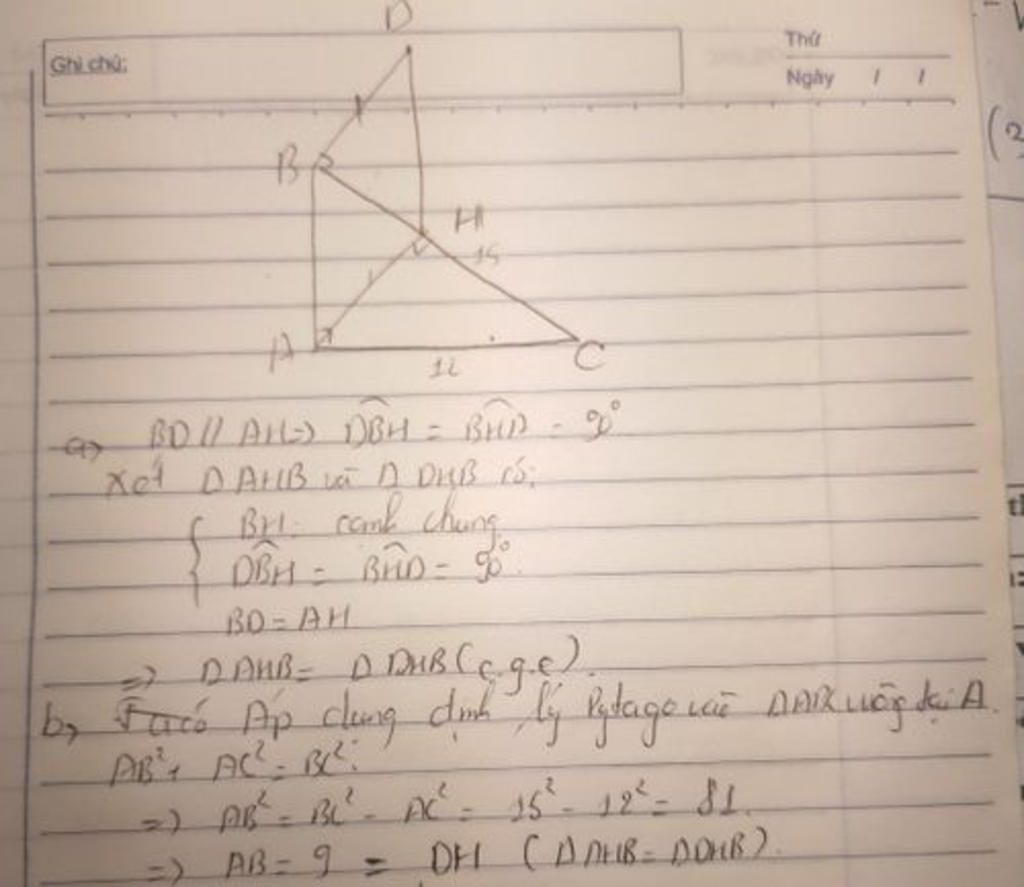 D
Ghi chú:
Thứ
Ngày / /
B
H
15
A
12
C
a) BD // AH => DBH = BHA = 90°
Xét Δ AHB và Δ DHB có:
BH: cạnh chung
DBH = BHA = 90°
BD = AH
=> Δ AHB = Δ DHB (c.g.c).
b, Áp dụng định lý Pytago vào Δ ABC vuông tại A.
AB² + AC² = BC²:
=> AB² = BC² - AC² = 15² - 12² = 81.
=> AB = 9 = DH (Δ AHB = Δ DHB).